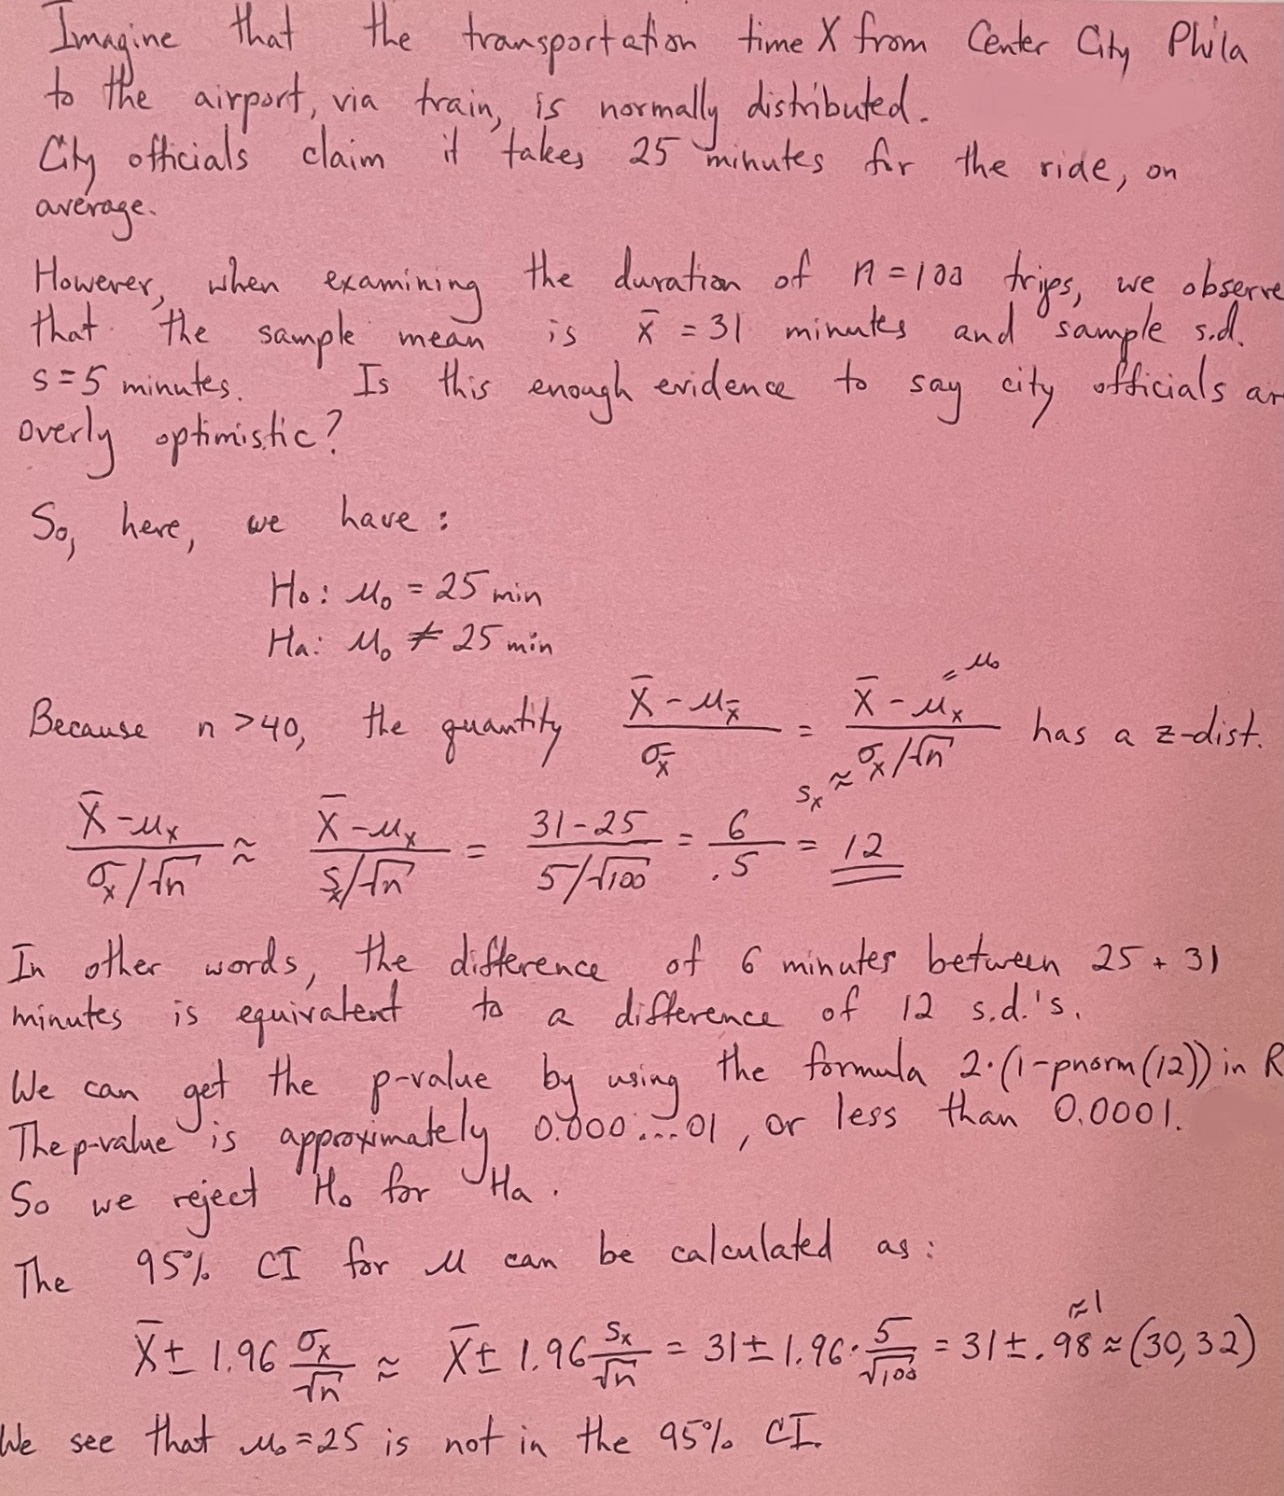 Imagine that the transportation time X from Center City Phila
to the airport, via train, is normally distributed.
City officials claim it takes 25 minutes for the ride, on
average.
However, when examining the duration of n = 100 trips, we observe
that the sample mean is x̄ = 31 minutes and sample s.d.
s = 5 minutes. Is this enough evidence to say city officials ar
overly optimistic?
So, here, we have :
H₀ : μ₀ = 25 min
Ha : μ₀ ≠ 25 min
Because n > 40, the quantity (X̄ - μ_X̄)/σ_X̄ = (X̄ - μ_X)/(σ_X/√n) has a z-dist.
= μ₀
s_X ≈
(X̄ - μ_X)/(σ_X/√n) ≈ (X̄ - μ_X)/(s_X/√n) = (31 - 25)/(5/√100) = 6/.5 = 12
In other words, the difference of 6 minutes between 25 + 31
minutes is equivalent to a difference of 12 s.d.'s.
We can get the p-value by using the formula 2·(1-pnorm(12)) in R
The p-value is approximately 0.000...01, or less than 0.0001.
So we reject H₀ for Ha.
The 95% CI for μ can be calculated as :
X̄ ± 1.96 σ_X/√n ≈ X̄ ± 1.96 s_X/√n = 31 ± 1.96 · 5/√100 = 31 ± .98 ≈ (30, 32)
≈ 1
We see that μ₀ = 25 is not in the 95% CI.